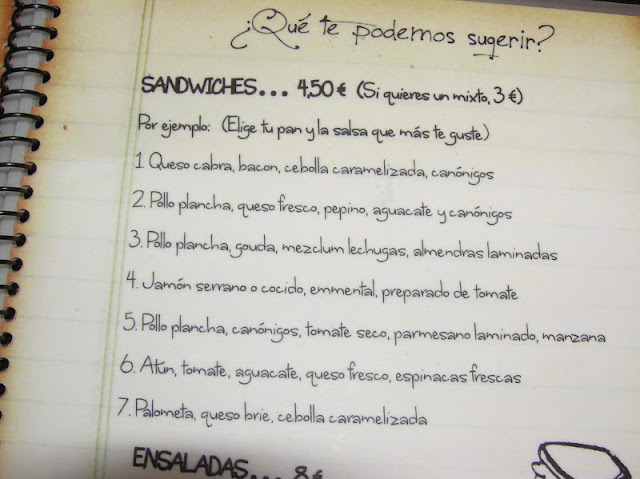 ¿Qué te podemos sugerir?
SANDWICHES... 4,50 € (Si quieres un mixto, 3 €)
Por ejemplo: (Elige tu pan y la salsa que más te guste)
1. Queso cabra, bacon, cebolla caramelizada, canónigos
2. Pollo plancha, queso fresco, pepino, aguacate y canónigos
3. Pollo plancha, gouda, mezclum lechugas, almendras laminadas
4. Jamón serrano o cocido, emmental, preparado de tomate
5. Pollo plancha, canónigos, tomate seco, parmesano laminado, manzana
6. Atun, tomate, aguacate, queso fresco, espinacas frescas
7. Palometa, queso brie, cebolla caramelizada
ENSALADAS... 8 €